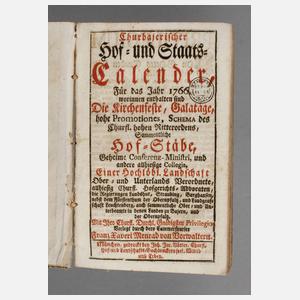 Churbajerischer
Hof- und Staats-
Calender,
Für das Jahr 1766.
worinnen enthalten sind
Die Kirchenfeste, Galatäge,
hohe Promotiones, SCHEMA des
Churfl. hohen Ritterordens,
Sammentliche
Hof-Stäbe,
Geheime Conferenz-Ministri, und
andere allhiesige Collegia,
Einer Hochlöbl. Landschaft
Ober- und Unterlands Verordnete,
allhiesig Churfl. Hofgerichts-Advocaten,
die Regierungen Landshut, Straubing, Burghausen,
nebst dem Fürstenthum der Obernpfalz, und Landgraf-
schaft Leuchtenberg, auch sammentliche Ober- und Un-
terbeamte in denen Landen zu Bayern, und
der Obernpfalz.
Mit Ihro Churfl. Durchl. gnädigsten Privilegio.
Verlegt durch dero Cammerfourier
Franz Xaveri Menrad von Vorwaltern.
München, gedruckt bey Joh. Jac. Vötter, Churfl.
Hof- und Landschafts-Buchdruckers sel. Wittib
und Erben.